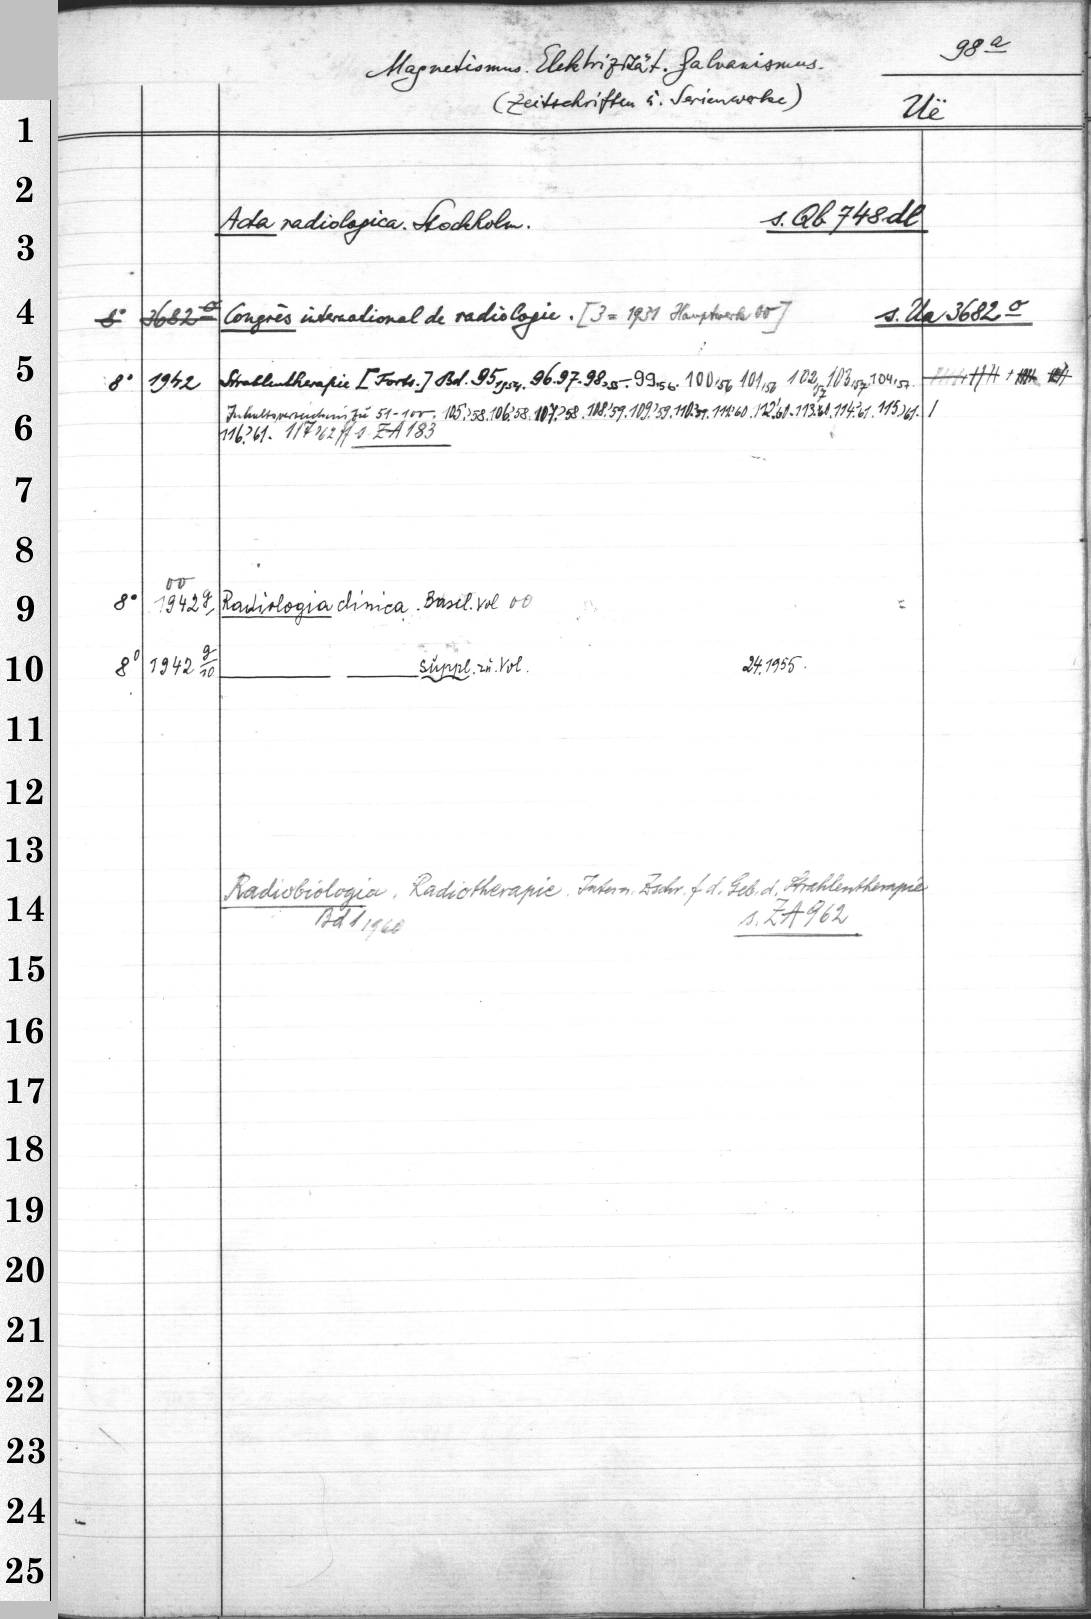 98a
Magnetismus. Elektrizität. Galvanismus.
(Zeitschriften u. Serienwerke)
Uë
1
2
Acta radiologica. Stockholm. s. Qb 748dl
3
4 8° 3682 o Congrès international de radiologie. [3 = 1931 Hauptwerk 00] s. Ua 3682 o
5 8° 1942 Strahlentherapie [Forts.] Bd. 95,1954. 96.97.98,55.-99,56. 100,56 101,56 102,57 103,57 104,57.
Inhaltsverzeichnis zu 51-100. 105,58. 106,58. 107,58. 108,59. 109,59. 110,59. 111,60. 112,60. 113,60. 114,61. 115,61.
6 116,61. 117,62 ff s. ZA 183
7
8
9 8° 1942 g 00 Radiologia clinica. Basel. Vol 00
10 8° 1942 g/10 suppl. zu. Vol. 24.1955.
11
12
13
Radiobiologia. Radiotherapie. Intern. Zschr. f. d. Geb. d. Strahlentherapie
14 Bd 1 1960 s. ZA 962
15
16
17
18
19
20
21
22
23
24
25